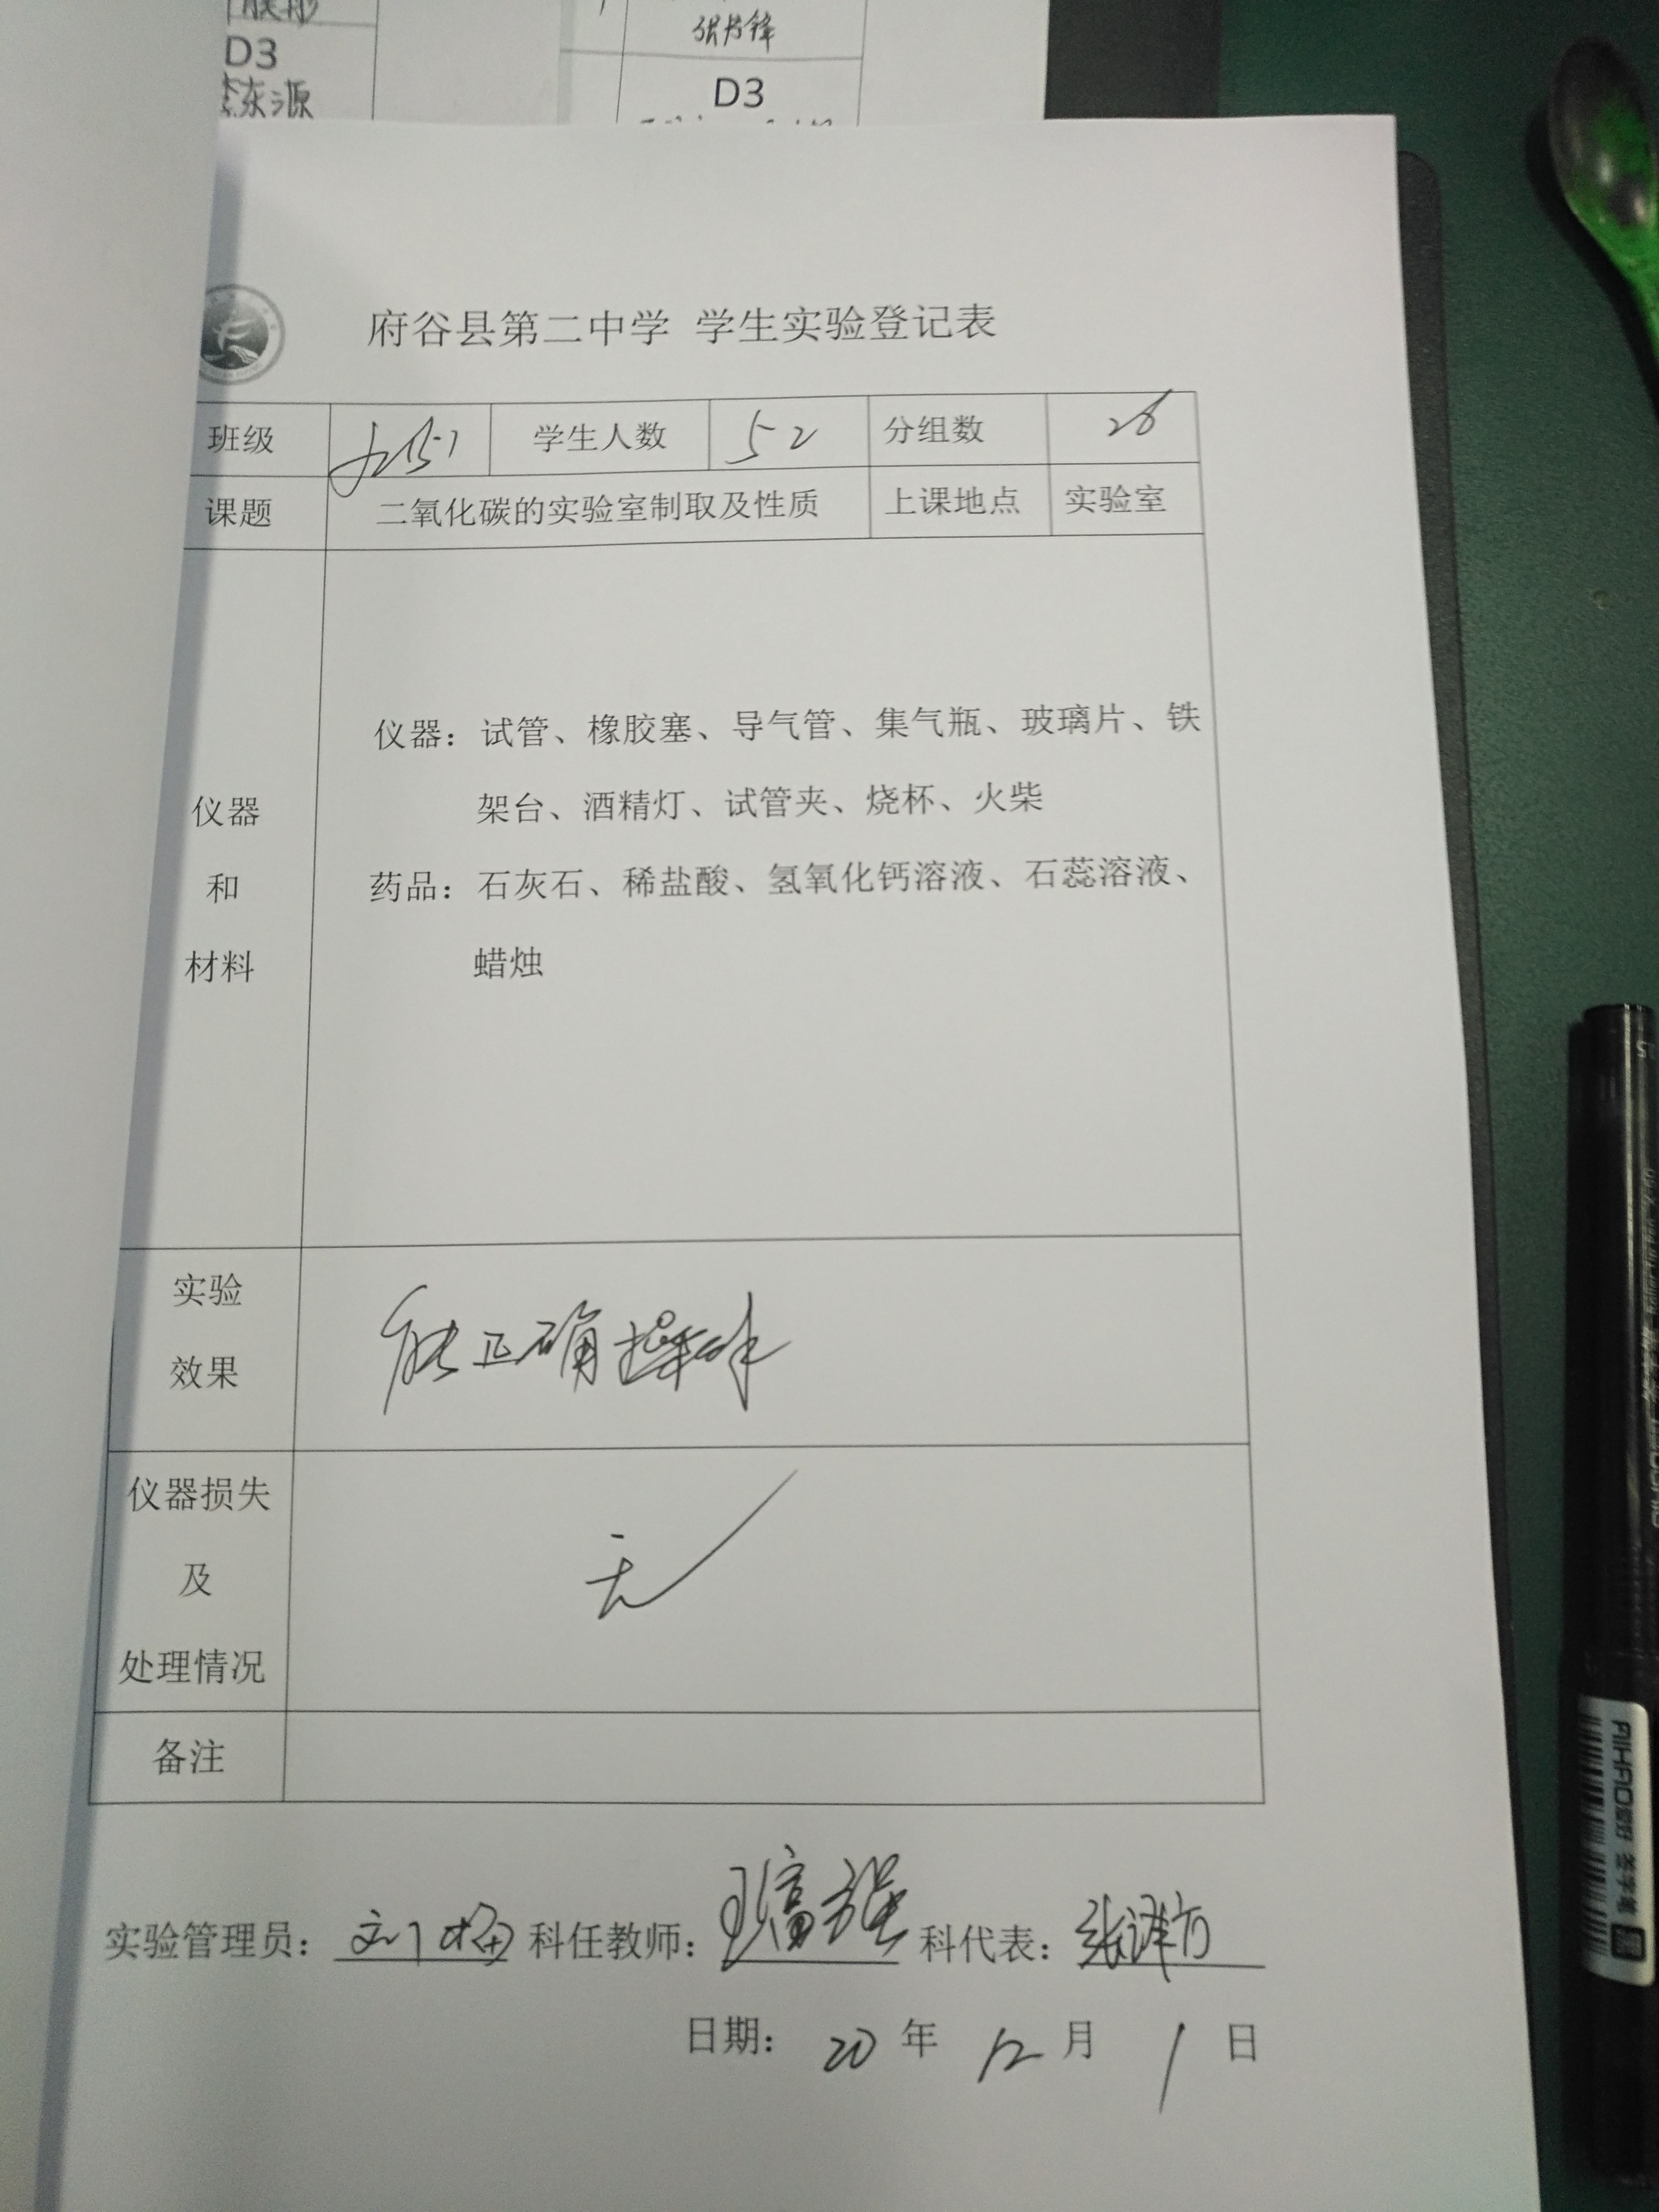 D3
东源
D3
府谷县第二中学 学生实验登记表
班级 学生人数 52 分组数 26
课题 二氧化碳的实验室制取及性质 上课地点 实验室
仪器
和
材料
仪器：试管、橡胶塞、导气管、集气瓶、玻璃片、铁
架台、酒精灯、试管夹、烧杯、火柴
药品：石灰石、稀盐酸、氢氧化钙溶液、石蕊溶液、
蜡烛
实验
效果
能正确操作
仪器损失
及
处理情况
无
备注
实验管理员： 刘梅 科任教师： 王富强 科代表：
日期： 20 年 12 月 1 日
AIHAO